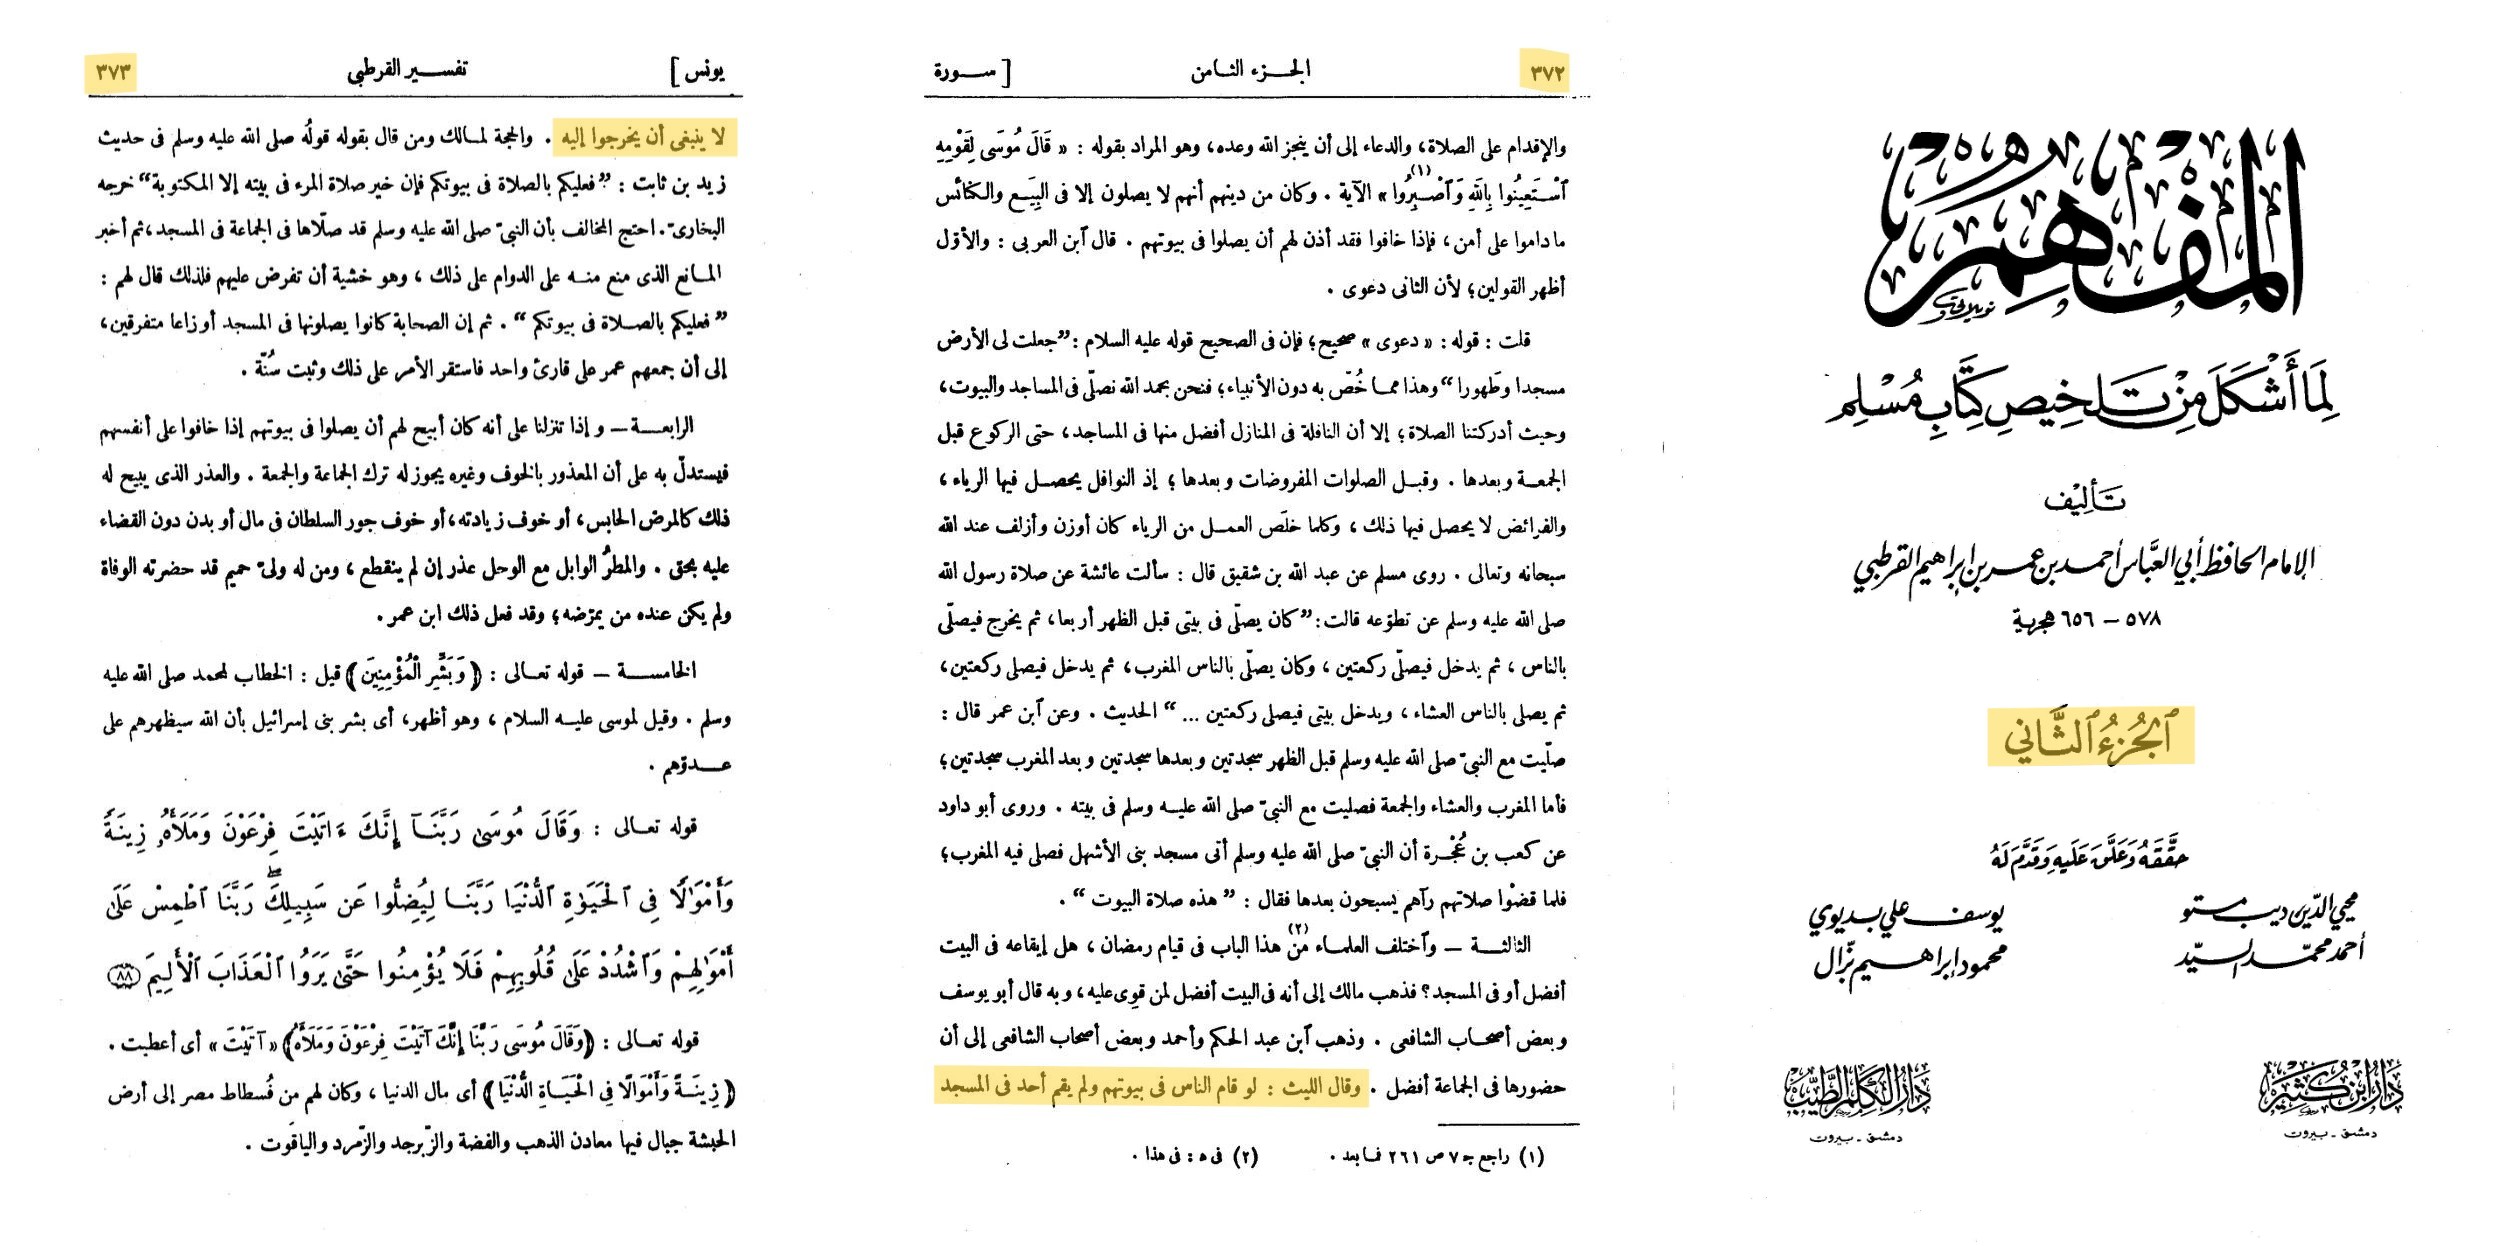 المفهم
لِمَا أَشْكَلَ مِنْ تَلخِيصِ كِتَابِ مُسْلِمِ
تَأليْف
الإمام الحافظ أبي العبَّاس أحمد بن عمر بن إبراهيم القرطبي
٥٧٨ - ٦٥٦ هجرية
ٱلجُزءُ ٱلثَّاني
حَقَّقَهُ وَعَلَّقَ عَلَيهِ وَقَدَّمَ لَهُ
محيي الدّين ديب مستو يوسف علي بديوي
أحمد محمّد السيّد محمود إبراهيم بزّال
دَارُ ابْن كَثِير دَارُ الكَلِم الطَّيِّب
دمشق - بيروت دمشق - بيروت
٣٧٢ الجزء الثامن [ سورة
والإقدام على الصلاة، والدعاء إلى أن ينجز الله وعده، وهو المراد بقوله : « قَالَ مُوسَى لِقَوْمِهِ
ٱسْتَعِينُوا بِاللهِ وَٱصْبِرُوا (١) » الآية . وكان من دينهم أنهم لا يصلون إلا فى البِيَع والكنائس
ما داموا على أمن ، فإذا خافوا فقد أذن لهم أن يصلوا فى بيوتهم . قال ٱبن العربى : والأوّل
أظهر القولين؛ لأن الثانى دعوى .
قلت : قوله : « دعوى » صحيح؛ فإن فى الصحيح قوله عليه السلام : ”جعلت لى الأرض
مسجدا وطَهورا“ وهذا مما خُصّ به دون الأنبياء؛ فنحن بحمد الله نصلّى فى المساجد والبيوت،
وحيث أدركتنا الصلاة؛ إلا أن النافلة فى المنازل أفضل منها فى المساجد، حتى الركوع قبل
الجمعة وبعدها . وقبل الصلوات المفروضات وبعدها ؛ إذ النوافل يحصل فيها الرياء ،
والفرائض لا يحصل فيها ذلك ، وكلما خلَص العمل من الرياء كان أوزن وأزلف عند الله
سبحانه وتعالى . روى مسلم عن عبد الله بن شقيق قال : سألت عائشة عن صلاة رسول الله
صلى الله عليه وسلم عن تطوّعه قالت: ”كان يصلّى فى بيتى قبل الظهر أربعا، ثم يخرج فيصلّى
بالناس ، ثم يدخل فيصلّى ركعتين ، وكان يصلّى بالناس المغرب، ثم يدخل فيصلى ركعتين،
ثم يصلى بالناس العشاء ، ويدخل بيتى فيصلى ركعتين ...“ الحديث . وعن ٱبن عمر قال :
صلّيت مع النبىّ صلى الله عليه وسلم قبل الظهر سجدتين وبعدها سجدتين وبعد المغرب سجدتين؛
فأما المغرب والعشاء والجمعة فصليت مع النبىّ صلى الله عليه وسلم فى بيته . وروى أبو داود
عن كعب بن عُجْرة أن النبىّ صلى الله عليه وسلم أتى مسجد بنى الأشهل فصلى فيه المغرب؛
فلما قضوْا صلاتهم رآهم يسبحون بعدها فقال : ” هذه صلاة البيوت “ .
الثالثة — وٱختلف العلماء من (٢) هذا الباب فى قيام رمضان ، هل إيقاعه فى البيت
أفضل أو فى المسجد؟ فذهب مالك إلى أنه فى البيت أفضل لمن قوِى عليه ، وبه قال أبو يوسف
وبعض أصحاب الشافعى . وذهب ٱبن عبد الحكم وأحمد وبعض أصحاب الشافعى إلى أن
حضورها فى الجماعة أفضل . وقال الليث : لو قام الناس فى بيوتهم ولم يقم أحد فى المسجد
(١) راجع جـ ٧ ص ٢٦١ فما بعد . (٢) فى هـ : فى هذا .
يونس ] تفسير القرطبى ٣٧٣
لا ينبغى أن يخرجوا إليه . والحجة لمالك ومن قال بقوله قولُه صلى الله عليه وسلم فى حديث
زيد بن ثابت : ”فعليكم بالصلاة فى بيوتكم فإن خير صلاة المرء فى بيته إلا المكتوبة“ خرجه
البخارىّ . احتج المخالف بأن النبىّ صلى الله عليه وسلم قد صلّاها فى الجماعة فى المسجد، ثم أخبر
المانع الذى منع منه على الدوام على ذلك ، وهو خشية أن تفرض عليهم فلذلك قال لهم :
” فعليكم بالصلاة فى بيوتكم “ . ثم إن الصحابة كانوا يصلونها فى المسجد أوزاعا متفرقين،
إلى أن جمعهم عمر على قارئ واحد فاستقر الأمر على ذلك وثبت سُنّة .
الرابعة — وإذا تنزلنا على أنه كان أبيح لهم أن يصلوا فى بيوتهم إذا خافوا على أنفسهم
فيستدلّ به على أن المعذور بالخوف وغيره يجوز له ترك الجماعة والجمعة . والعذر الذى يبيح له
ذلك كالمرض الحابس، أو خوف زيادته، أو خوف جور السلطان فى مال أو بدن دون القضاء
عليه بحق . والمطرُ الوابل مع الوحل عذر إن لم ينقطع ، ومن له ولىّ حميم قد حضرته الوفاة
ولم يكن عنده من يمرّضه؛ وقد فعل ذلك ابن عمر .
الخامسة — قوله تعالى : ﴿ وَبَشِّرِ الْمُؤْمِنِينَ ﴾ قيل : الخطاب لمحمد صلى الله عليه
وسلم . وقيل لموسى عليه السلام ، وهو أظهر، أى بشر بنى إسرائيل بأن الله سيظهرهم على
عدوّهم .
قوله تعالى : وَقَالَ مُوسَىٰ رَبَّنَآ إِنَّكَ ءَاتَيْتَ فِرْعَوْنَ وَمَلَأَهُۥ زِينَةً
وَأَمْوَٰلًا فِى ٱلْحَيَوٰةِ ٱلدُّنْيَا رَبَّنَا لِيُضِلُّوا عَن سَبِيلِكَۖ رَبَّنَا ٱطْمِسْ عَلَىٰ
أَمْوَٰلِهِمْ وَٱشْدُدْ عَلَىٰ قُلُوبِهِمْ فَلَا يُؤْمِنُوا حَتَّىٰ يَرَوُا ٱلْعَذَابَ ٱلْأَلِيمَ ٨٨
قوله تعالى : ﴿وَقَالَ مُوسَى رَبَّنَا إِنَّكَ آتَيْتَ فِرْعَوْنَ وَمَلَأَهُ﴾ « آتَيْتَ » أى أعطيت .
﴿ زِينَةً وَأَمْوَالًا فِي الْحَيَاةِ الدُّنْيَا ﴾ أى مال الدنيا ، وكان لهم من فُسطاط مصر إلى أرض
الحبشة جبال فيها معادن الذهب والفضة والزّبرجد والزّمرد والياقوت .